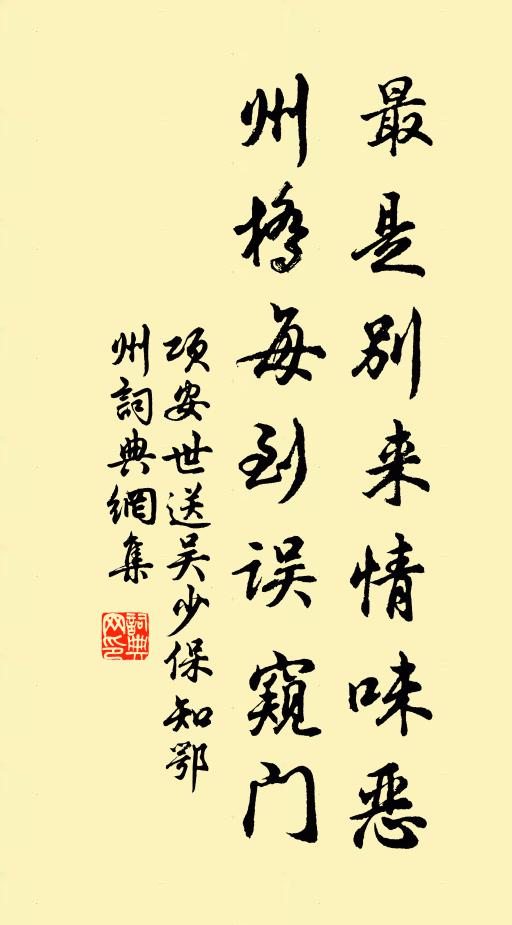 最是别来情味恶
州橋每到误窺门
项安世送吴少保知鄂
州詞典網集
詞典网印